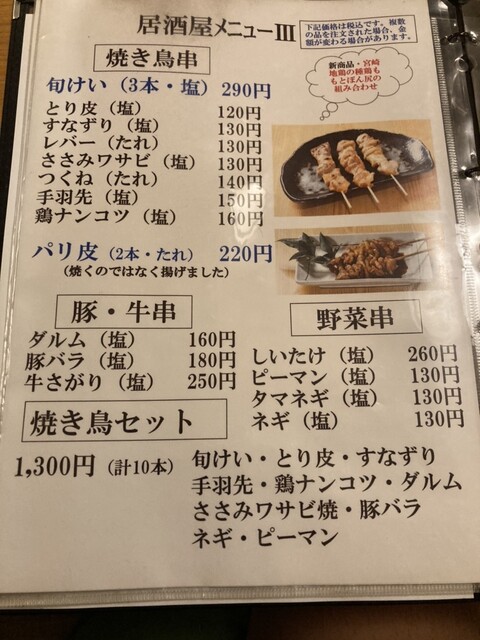 居酒屋メニューⅢ
下記価格は税込です。複数
の品を注文された場合、金
額が変わる場合があります。
焼き鳥串
新商品・宮崎
地鶏の種鶏も
もとぼん尻の
組み合わせ
旬けい（3本・塩）290円
とり皮（塩） 120円
すなずり（塩） 130円
レバー（たれ） 130円
ささみワサビ（塩） 130円
つくね（たれ） 140円
手羽先（塩） 150円
鶏ナンコツ（塩） 160円
パリ皮（2本・たれ） 220円
（焼くのではなく揚げました）
豚・牛串
ダルム（塩） 160円
豚バラ（塩） 180円
牛さがり（塩） 250円
野菜串
しいたけ（塩） 260円
ピーマン（塩） 130円
タマネギ（塩） 130円
ネギ（塩） 130円
焼き鳥セット
1,300円（計10本） 旬けい・とり皮・すなずり
手羽先・鶏ナンコツ・ダルム
ささみワサビ焼・豚バラ
ネギ・ピーマン